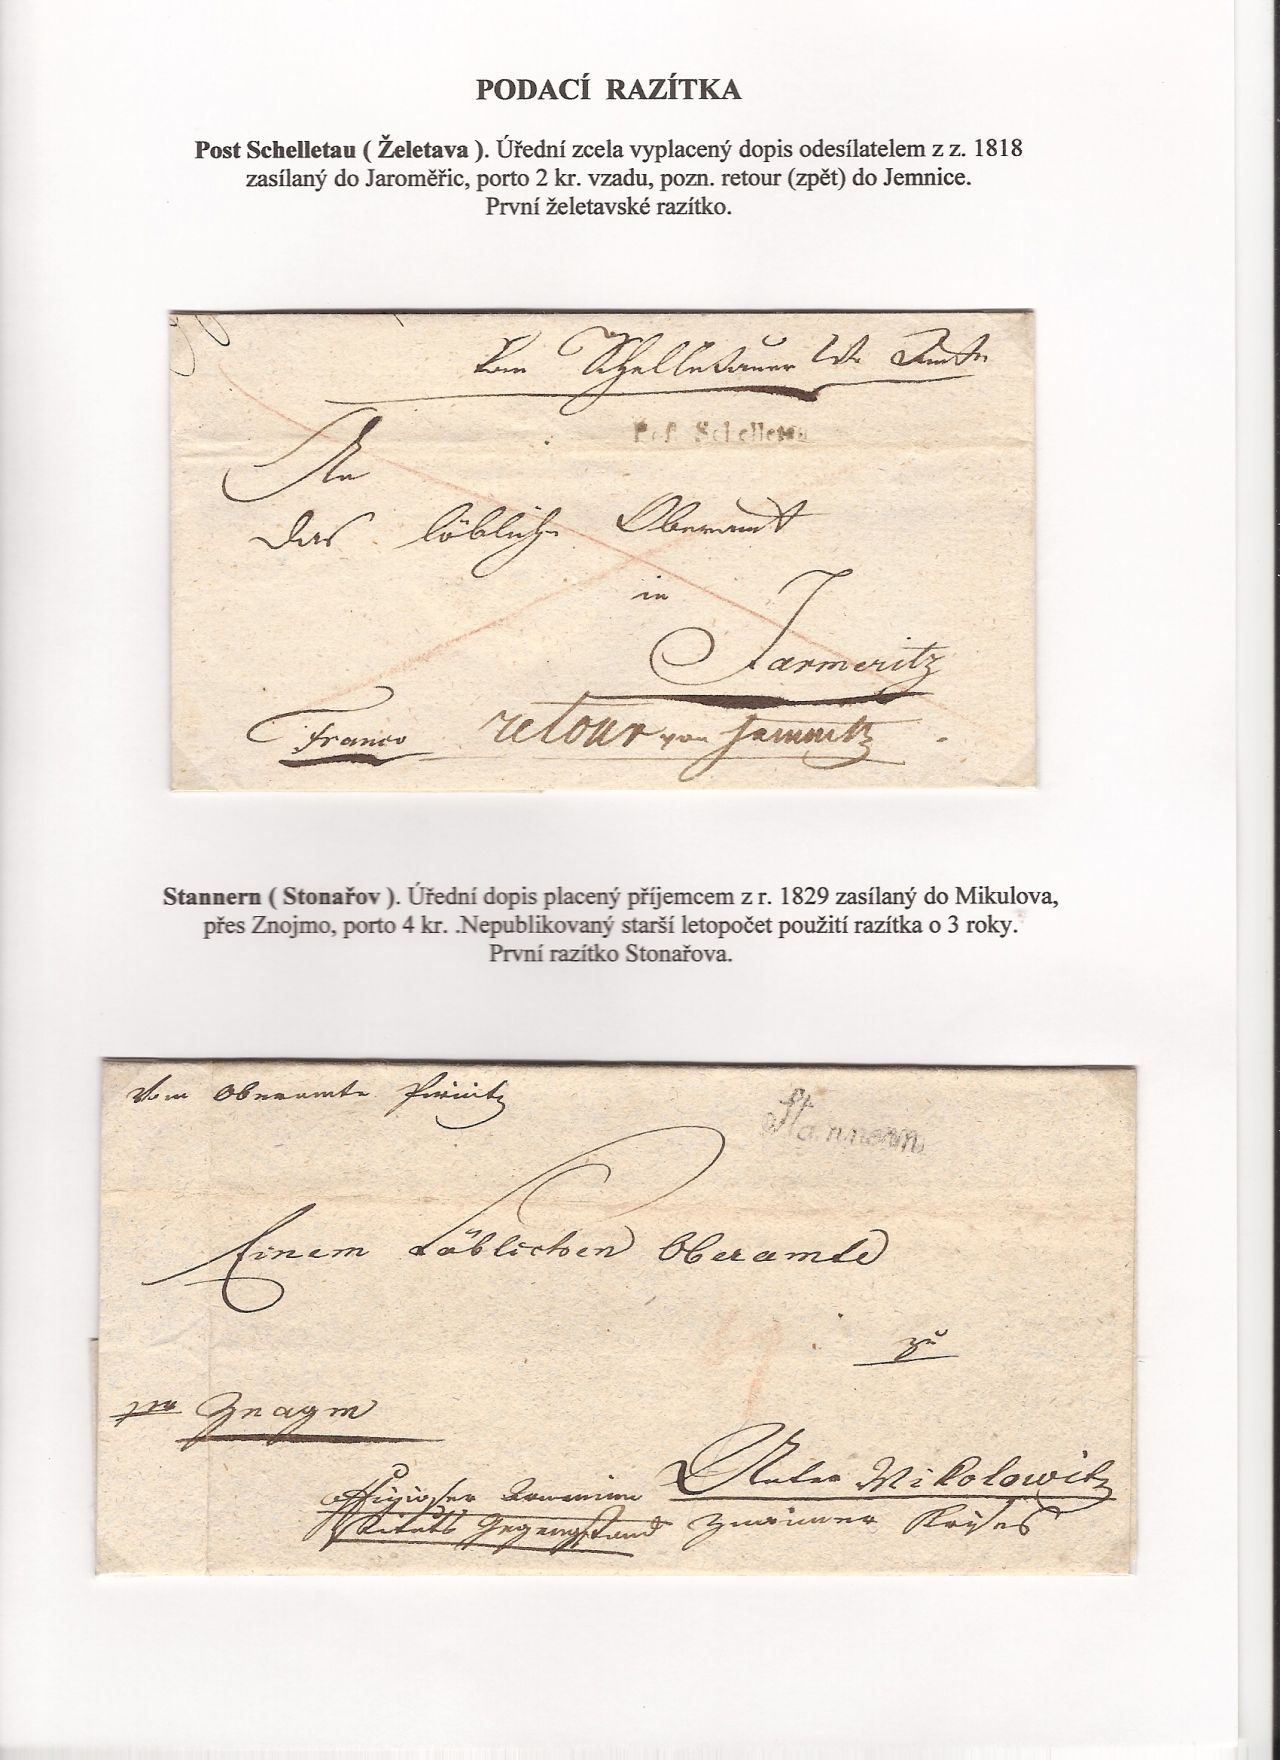 PODACÍ RAZÍTKA
Post Schelletau ( Želetava ). Úřední zcela vyplacený dopis odesílatelem z z. 1818
zasílaný do Jaroměřic, porto 2 kr. vzadu, pozn. retour (zpět) do Jemnice.
První želetavské razítko.
Vom Schelletauer Amte
Post Schelletau
An
das löbliche Oberamt
in
Jarmeritz
Franco retour von Jamnitz
Stannern ( Stonařov ). Úřední dopis placený příjemcem z r. 1829 zasílaný do Mikulova,
přes Znojmo, porto 4 kr. .Nepublikovaný starší letopočet použití razítka o 3 roky.
První razítko Stonařova.
Vom Oberamte Pirnitz
Stannern
Einem Löblichen Oberamte
zu
per Znaym
Unter Mikolowitz
Gegenstand Znaimer Kreises